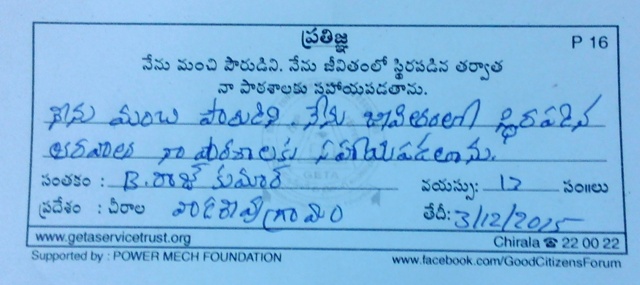 ప్రతిజ్ఞ
P 16
నేను మంచి పౌరుడిని. నేను జీవితంలో స్థిరపడిన తర్వాత
నా పాఠశాలకు సహాయపడతాను.
నేను మంచి పౌరుడిని. నేను జీవితంలో స్థిరపడిన
తరవాత నా పాఠశాలకు సహాయపడతాను.
సంతకం : B. రాజ్ కుమార్ వయస్సు: 12 సం॥లు
ప్రదేశం : చీరాల వాడరేవు గ్రామం తేదీ: 3/12/2015
www.getaservicetrust.org Chirala ☎ 22 00 22
Supported by : POWER MECH FOUNDATION www.facebook.com/GoodCitizensForum